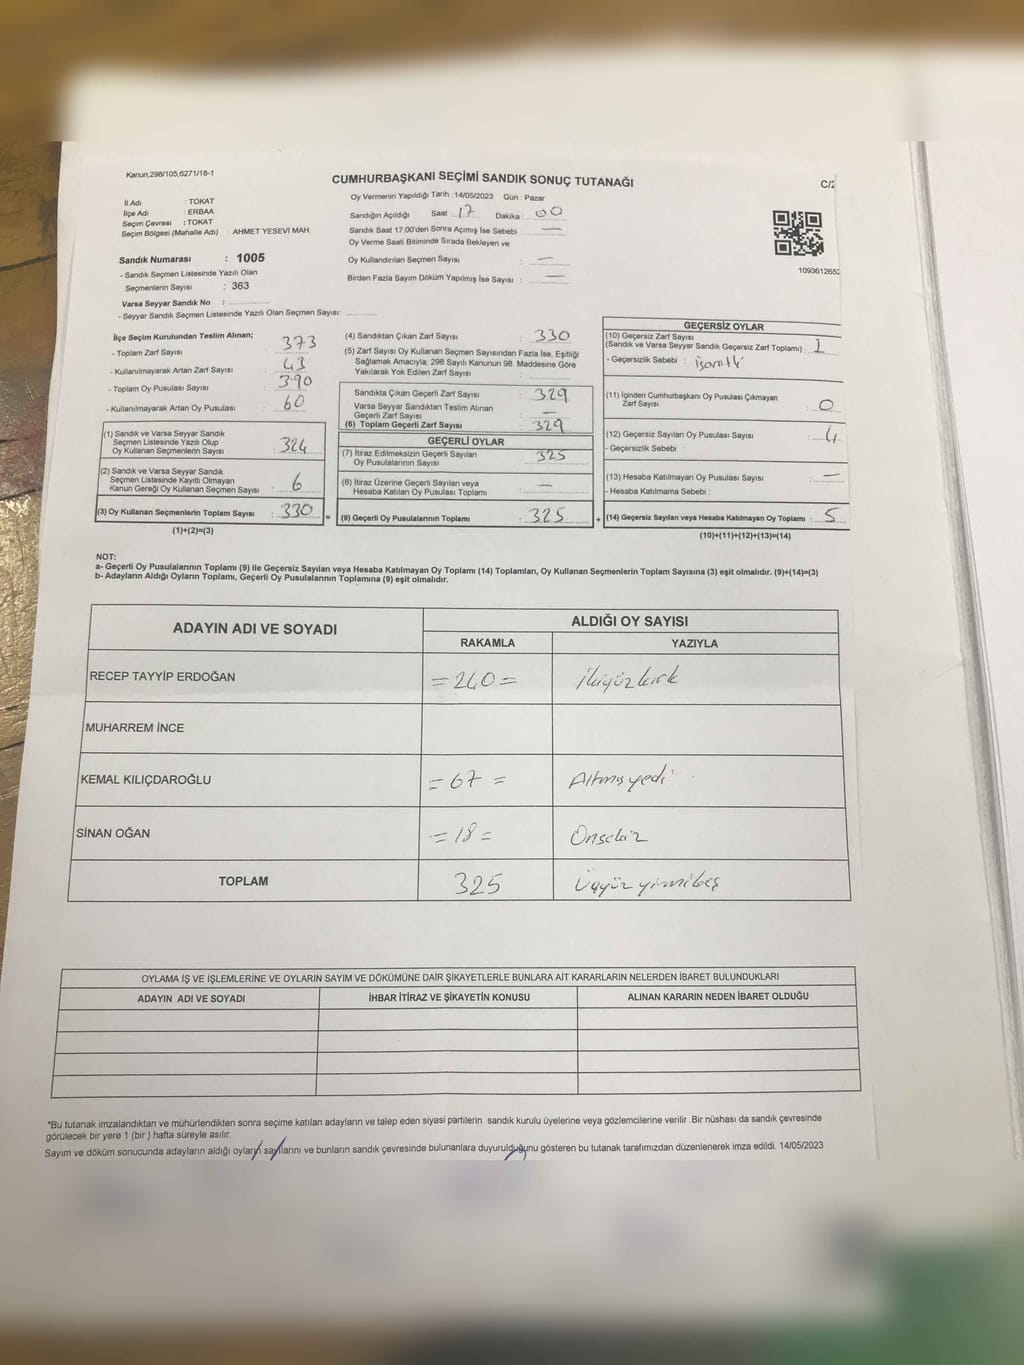 Kanun;298/105;6271/18-1
CUMHURBAŞKANI SEÇİMİ SANDIK SONUÇ TUTANAĞI
C/2
İl Adı : TOKAT
İlçe Adı : ERBAA
Seçim Çevresi : TOKAT
Seçim Bölgesi (Mahalle Adı) : AHMET YESEVİ MAH.
Oy Vermenin Yapıldığı Tarih : 14/05/2023 Gün : Pazar
Sandığın Açıldığı Saat : 17 Dakika : 00
Sandık Saat 17:00'den Sonra Açımış İse Sebebi : —
Oy Verme Saati Bitiminde Sırada Bekleyen ve
Oy Kullandırılan Seçmen Sayısı : —
Birden Fazla Sayım Döküm Yapılmış İse Sayısı : —
1093612652
Sandık Numarası : 1005
- Sandık Seçmen Listesinde Yazılı Olan
Seçmenlerin Sayısı : 363
Varsa Seyyar Sandık No :
- Seyyar Sandık Seçmen Listesinde Yazılı Olan Seçmen Sayısı:
İlçe Seçim Kurulundan Teslim Alınan;
- Toplam Zarf Sayısı : 373
- Kullanılmayarak Artan Zarf Sayısı : 43
- Toplam Oy Pusulası Sayısı : 390
- Kullanılmayarak Artan Oy Pusulası : 60
(1) Sandık ve Varsa Seyyar Sandık
Seçmen Listesinde Yazılı Olup
Oy Kullanan Seçmenlerin Sayısı : 324
(2) Sandık ve Varsa Seyyar Sandık
Seçmen Listesinde Kayıtlı Olmayan
Kanun Gereği Oy Kullanan Seçmen Sayısı : 6
(3) Oy Kullanan Seçmenlerin Toplam Sayısı : 330 =
(1)+(2)=(3)
(4) Sandıktan Çıkan Zarf Sayısı : 330
(5) Zarf Sayısı Oy Kullanan Seçmen Sayısından Fazla İse, Eşitliği
Sağlamak Amacıyla; 298 Sayılı Kanunun 98. Maddesine Göre
Yakılarak Yok Edilen Zarf Sayısı :
Sandıkta Çıkan Geçerli Zarf Sayısı : 329
Varsa Seyyar Sandıktan Teslim Alınan
Geçerli Zarf Sayısı : —
(6) Toplam Geçerli Zarf Sayısı : 329
GEÇERLİ OYLAR
(7) İtiraz Edilmeksizin Geçerli Sayılan
Oy Pusulalarının Sayısı : 325
(8) İtiraz Üzerine Geçerli Sayılan veya
Hesaba Katılan Oy Pusulası Toplamı : —
(9) Geçerli Oy Pusulalarının Toplamı : 325 +
GEÇERSİZ OYLAR
(10) Geçersiz Zarf Sayısı
(Sandık ve Varsa Seyyar Sandık Geçersiz Zarf Toplamı) : 1
- Geçersizlik Sebebi : işaretli
(11) İçinden Cumhurbaşkanı Oy Pusulası Çıkmayan
Zarf Sayısı : 0
(12) Geçersiz Sayılan Oy Pusulası Sayısı : 4
- Geçersizlik Sebebi :
(13) Hesaba Katılmayan Oy Pusulası Sayısı : —
- Hesaba Katılmama Sebebi :
(14) Geçersiz Sayılan veya Hesaba Katılmayan Oy Toplamı : 5
(10)+(11)+(12)+(13)=(14)
NOT:
a- Geçerli Oy Pusulalarının Toplamı (9) ile Geçersiz Sayılan veya Hesaba Katılmayan Oy Toplamı (14) Toplamları, Oy Kullanan Seçmenlerin Toplam Sayısına (3) eşit olmalıdır. (9)+(14)=(3)
b- Adayların Aldığı Oyların Toplamı, Geçerli Oy Pusulalarının Toplamına (9) eşit olmalıdır.
ADAYIN ADI VE SOYADI
ALDIĞI OY SAYISI
RAKAMLA YAZIYLA
RECEP TAYYİP ERDOĞAN =240= ikiyüzkırk
MUHARREM İNCE
KEMAL KILIÇDAROĞLU =67= Altmışyedi
SİNAN OĞAN =18= Onsekiz
TOPLAM 325 Üçyüzyirmibeş
OYLAMA İŞ VE İŞLEMLERİNE VE OYLARIN SAYIM VE DÖKÜMÜNE DAİR ŞİKAYETLERLE BUNLARA AİT KARARLARIN NELERDEN İBARET BULUNDUKLARI
ADAYIN ADI VE SOYADI İHBAR İTİRAZ VE ŞİKAYETİN KONUSU ALINAN KARARIN NEDEN İBARET OLDUĞU
*Bu tutanak imzalandıktan ve mühürlendikten sonra seçime katılan adayların ve talep eden siyasi partilerin sandık kurulu üyelerine veya gözlemcilerine verilir .Bir nüshası da sandık çevresinde
görülecek bir yere 1 (bir ) hafta süreyle asılır.
Sayım ve döküm sonucunda adayların aldığı oyların sayılarını ve bunların sandık çevresinde bulunanlara duyurulduğunu gösteren bu tutanak tarafımızdan düzenlenerek imza edildi. 14/05/2023